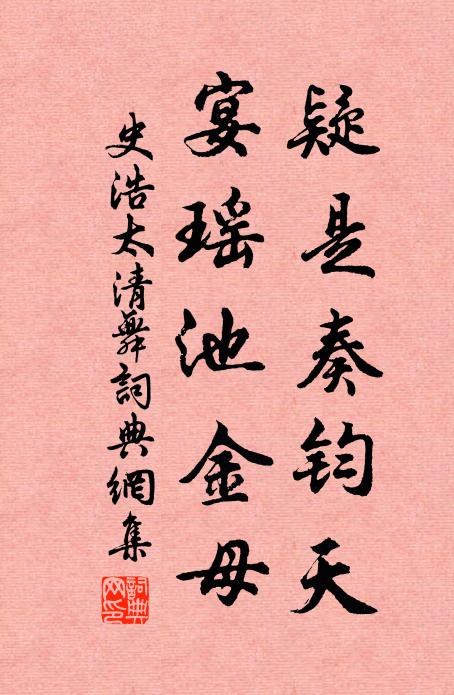 疑是奏鈞天
宴瑶池金母
史浩太清舞詞典網集
詞典网印